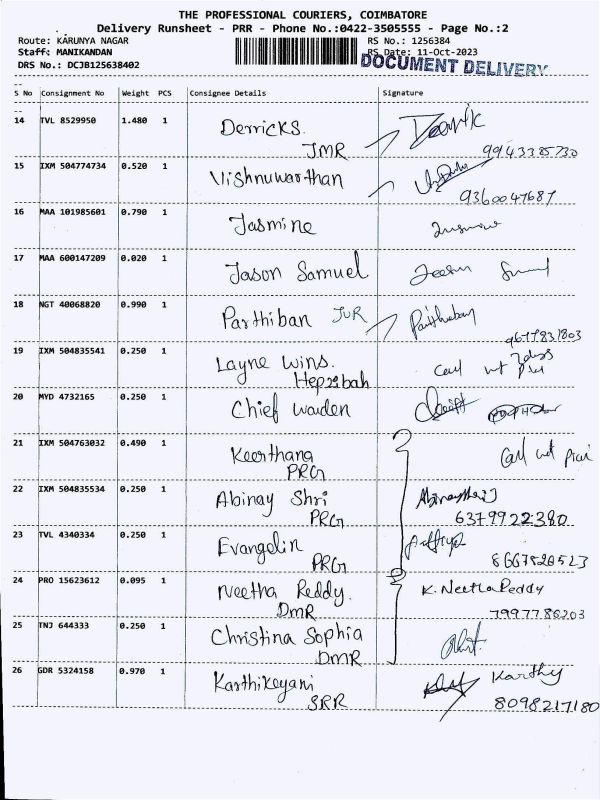 THE PROFESSIONAL COURIERS, COIMBATORE
Delivery Runsheet - PRR - Phone No.:0422-3505555 - Page No.:2
Route: KARUNYA NAGAR RS No.: 1256384
Staff: MANIKANDAN RS Date: 11-Oct-2023
DRS No.: DCJB125638402 DOCUMENT DELIVERY
S No Consignment No Weight PCS Consignee Details Signature
14 TVL 8529950 1.480 1 Derricks.
JMR
15 IXM 504774734 0.520 1 Vishnuwarthan
9360047687
16 MAA 101985601 0.790 1 Jasmine
17 MAA 600147209 0.020 1 Jason Samuel
18 NGT 40068820 0.990 1 Parthiban JUR Parthiban
9677831803
19 IXM 504835541 0.250 1 Layne Wins.
20 MYD 4732165 0.250 1 Chief Warden
21 IXM 504763032 0.490 1 Keerthana
PRG
22 IXM 504835534 0.250 1 Abinay Shri
PRG 6379922380
23 TVL 4340334 0.250 1 Evangelin
PRG 8667520523
24 PRO 15623612 0.095 1 Neetha Reddy. K. Neetha Reddy
DMR
25 TNJ 644333 0.250 1 Christina Sophia
DMR
26 GDR 5324158 0.970 1 Karthikeyani Karthy
SRR 8098217180